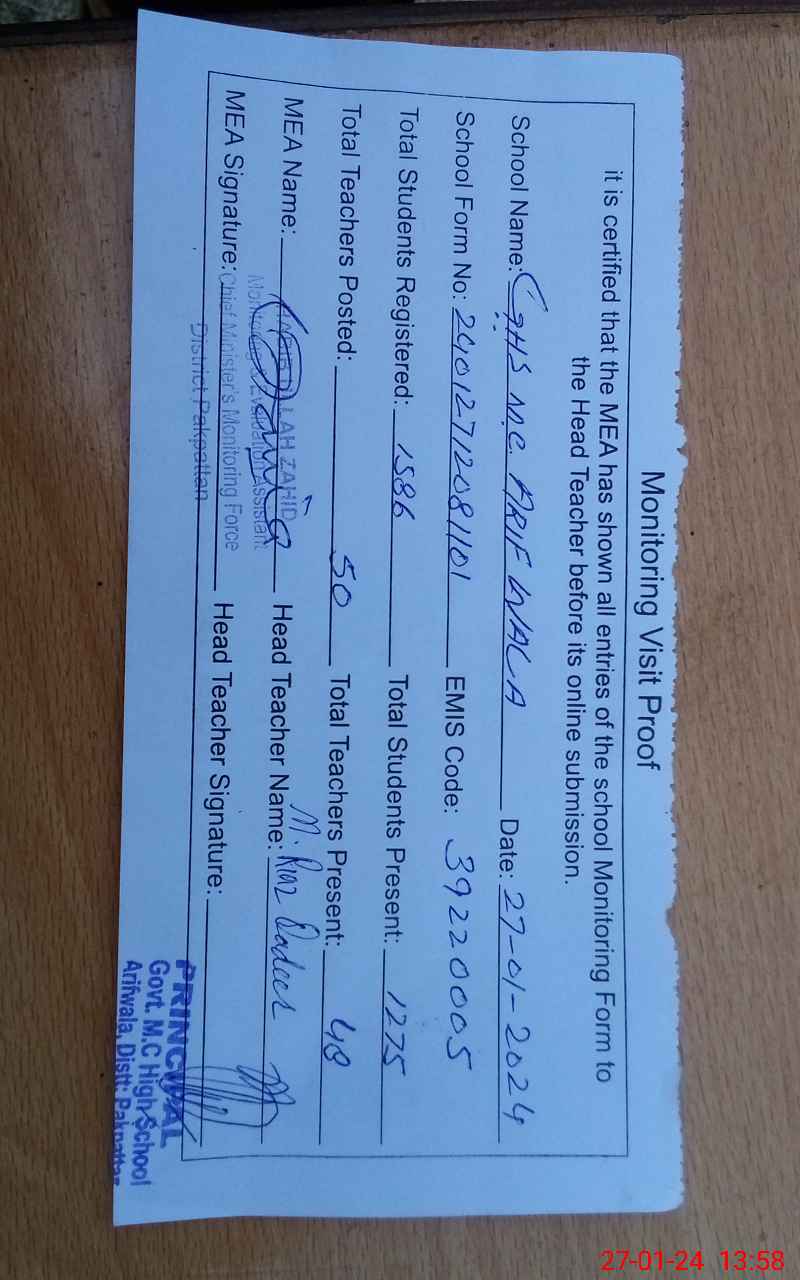 Monitoring Visit Proof
it is certified that the MEA has shown all entries of the school Monitoring Form to
the Head Teacher before its online submission.
School Name: GHS M.C. ARIF WALA Date: 27-01-2024
School Form No: 24012712081101 EMIS Code: 39220005
Total Students Registered: 1586 Total Students Present: 1275
Total Teachers Posted: 50 Total Teachers Present: 48
MEA Name: ZAHID Head Teacher Name: M. Riaz
Monitoring & Evaluation Assistant
MEA Signature: Chief Minister's Monitoring Force Head Teacher Signature:
District Pakpattan
PRINCIPAL
Govt. M.C High School
Arifwala, Distt: Pakpattan
27-01-24 13:58